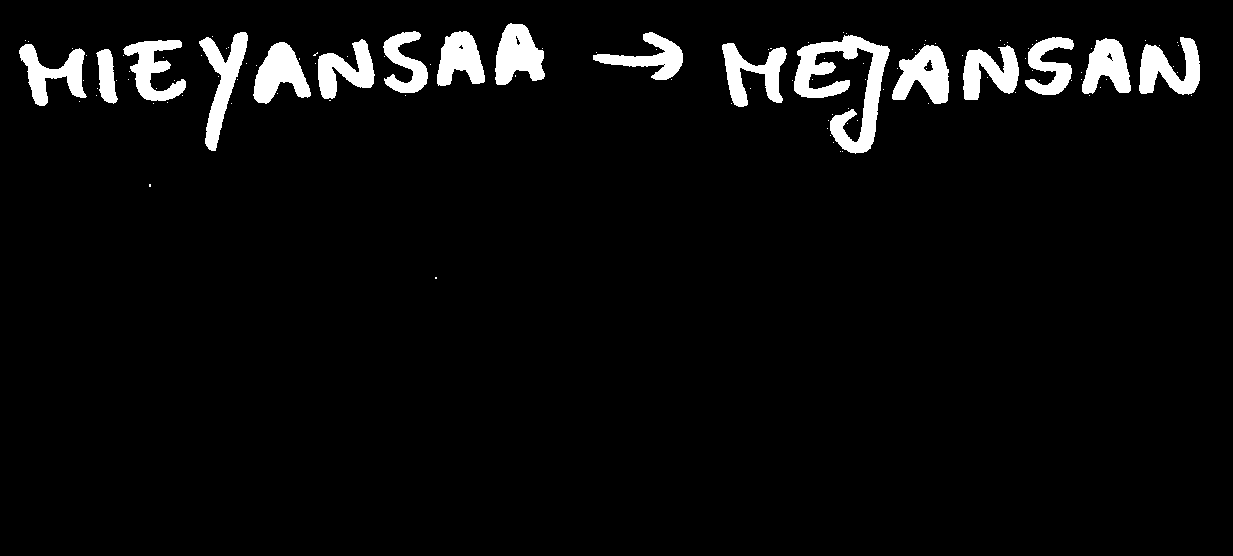 MIEYANSAA → MEJANSAN